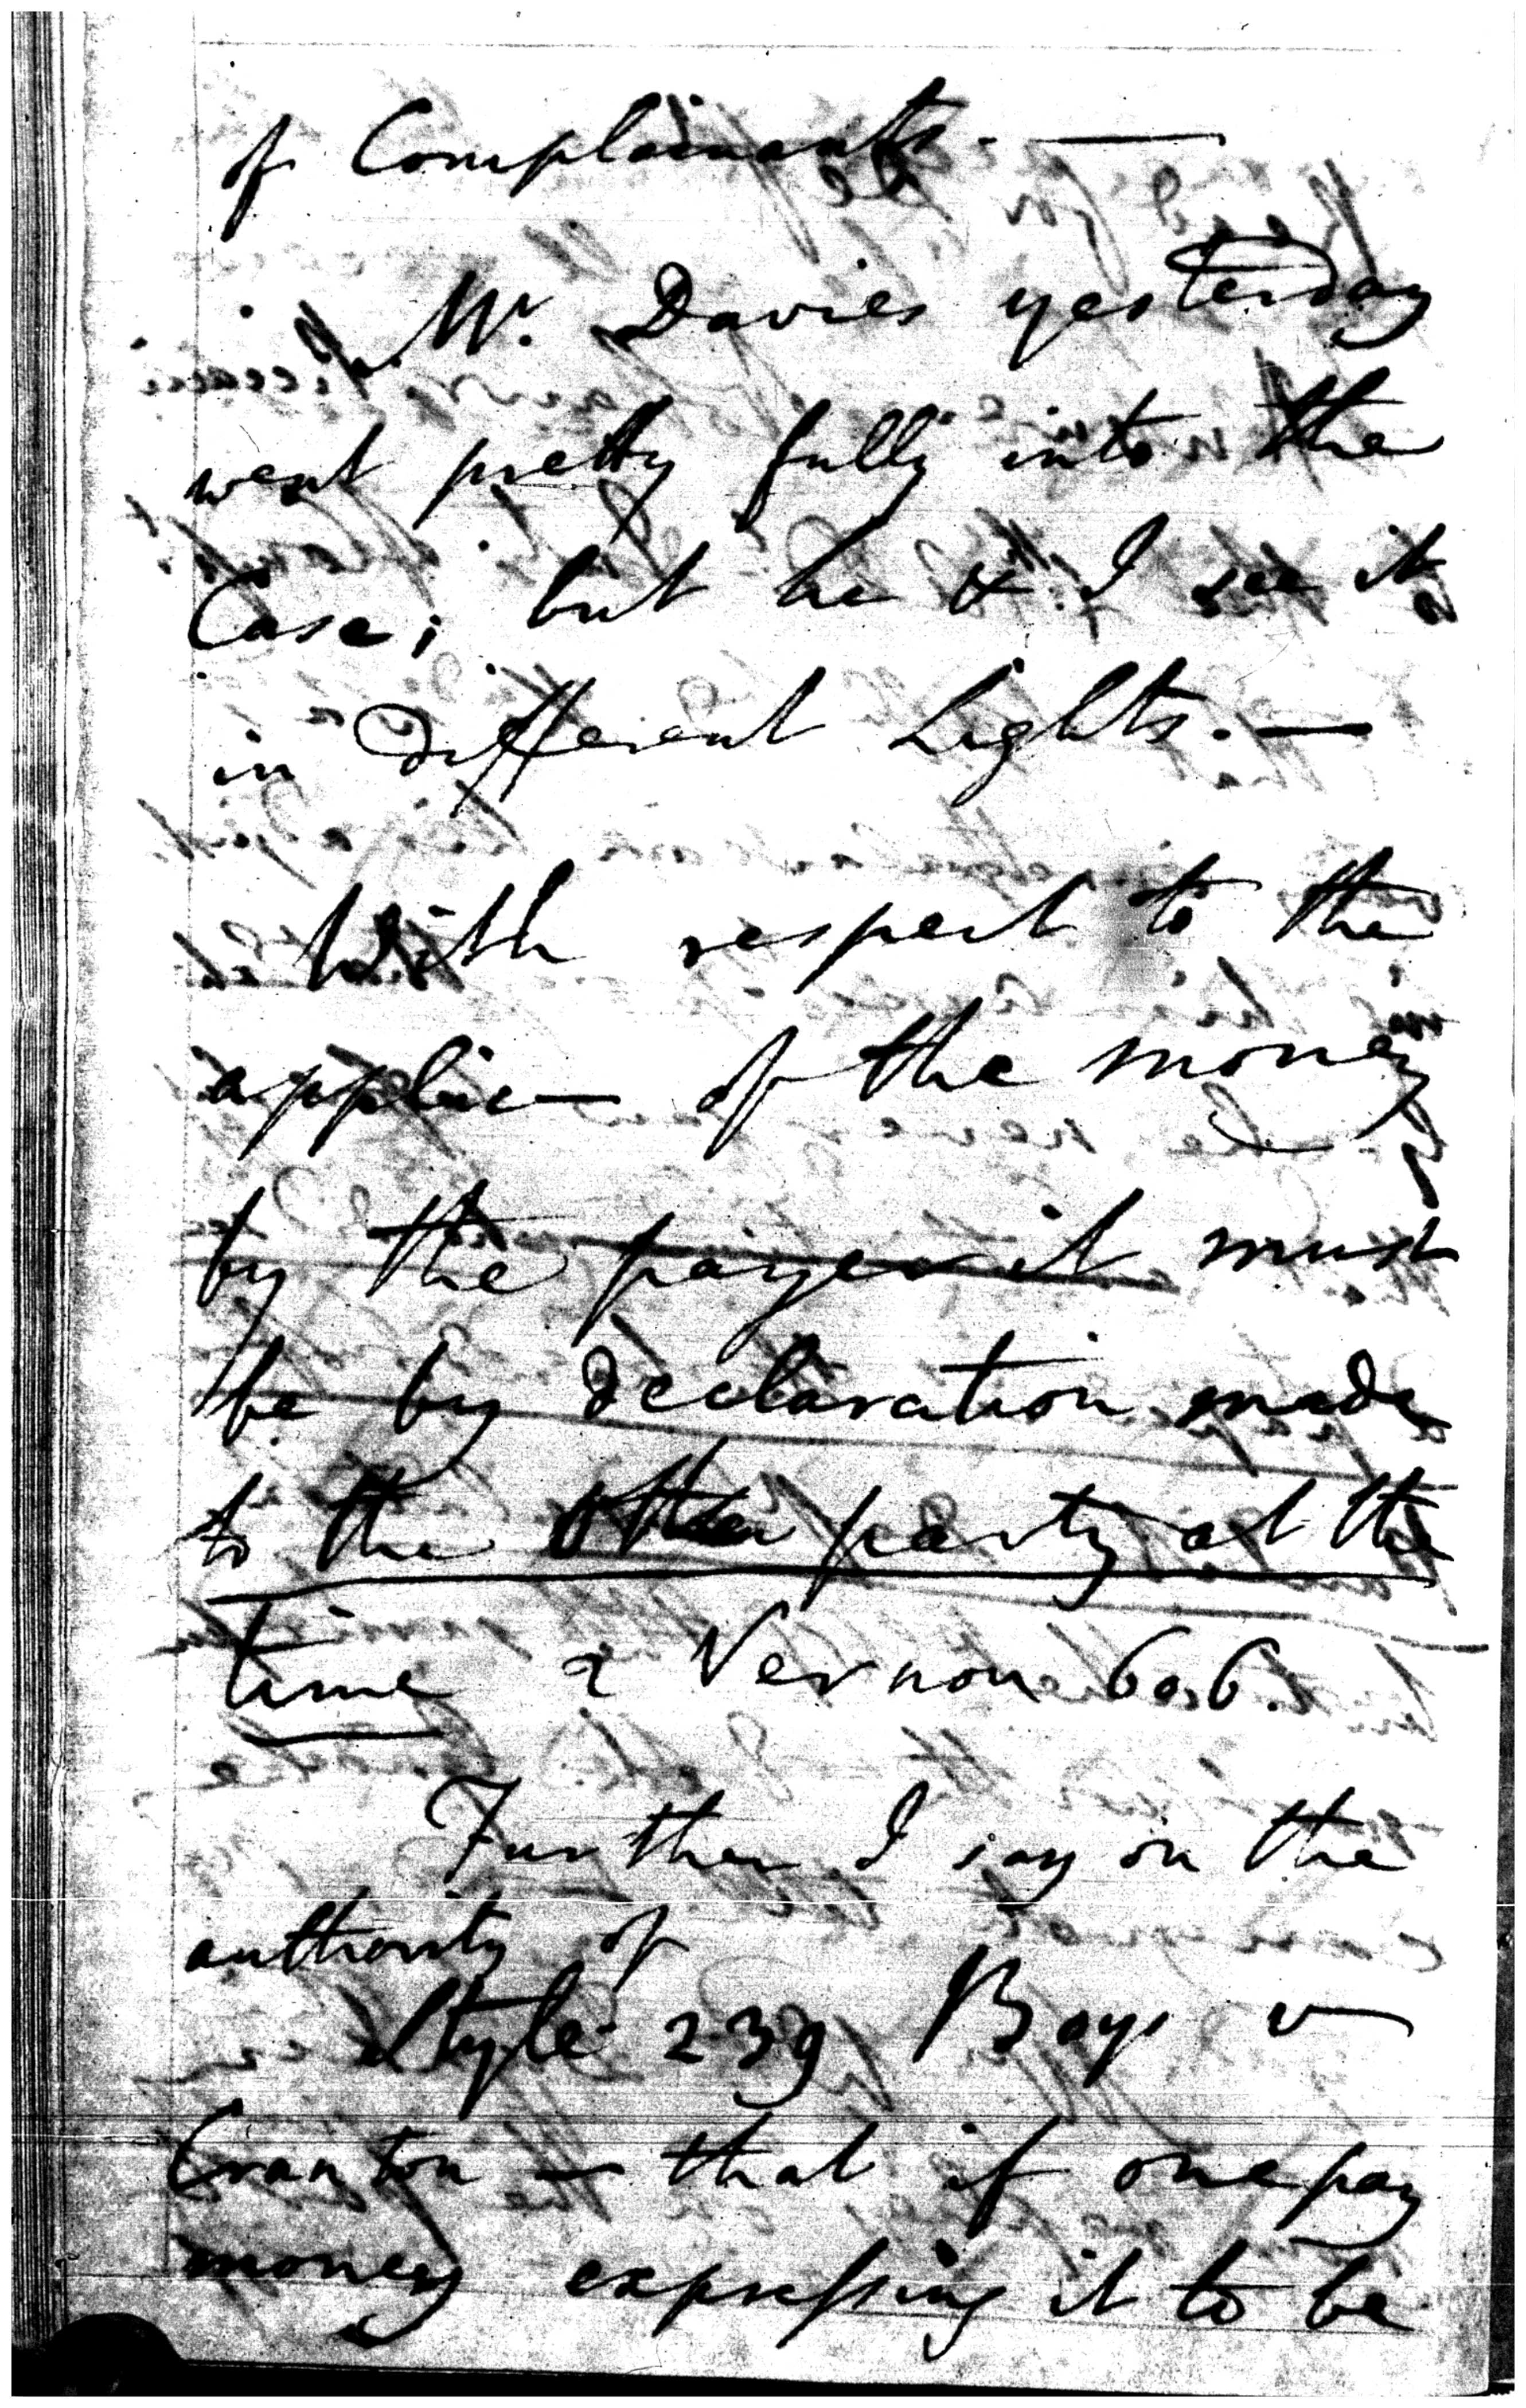 of Complainants. —
Mr. Davies yesterday
went pretty fully into the
Case; but he & I see it
in different Lights. —
With respect to the
applic— of the money
by the payer it must
be by declaration made
to the other party at the
time 2 Vernon 606.
Further I say on the
authority of
Style 239 Boys v
Cranton — that if one pay
money expressing it to be